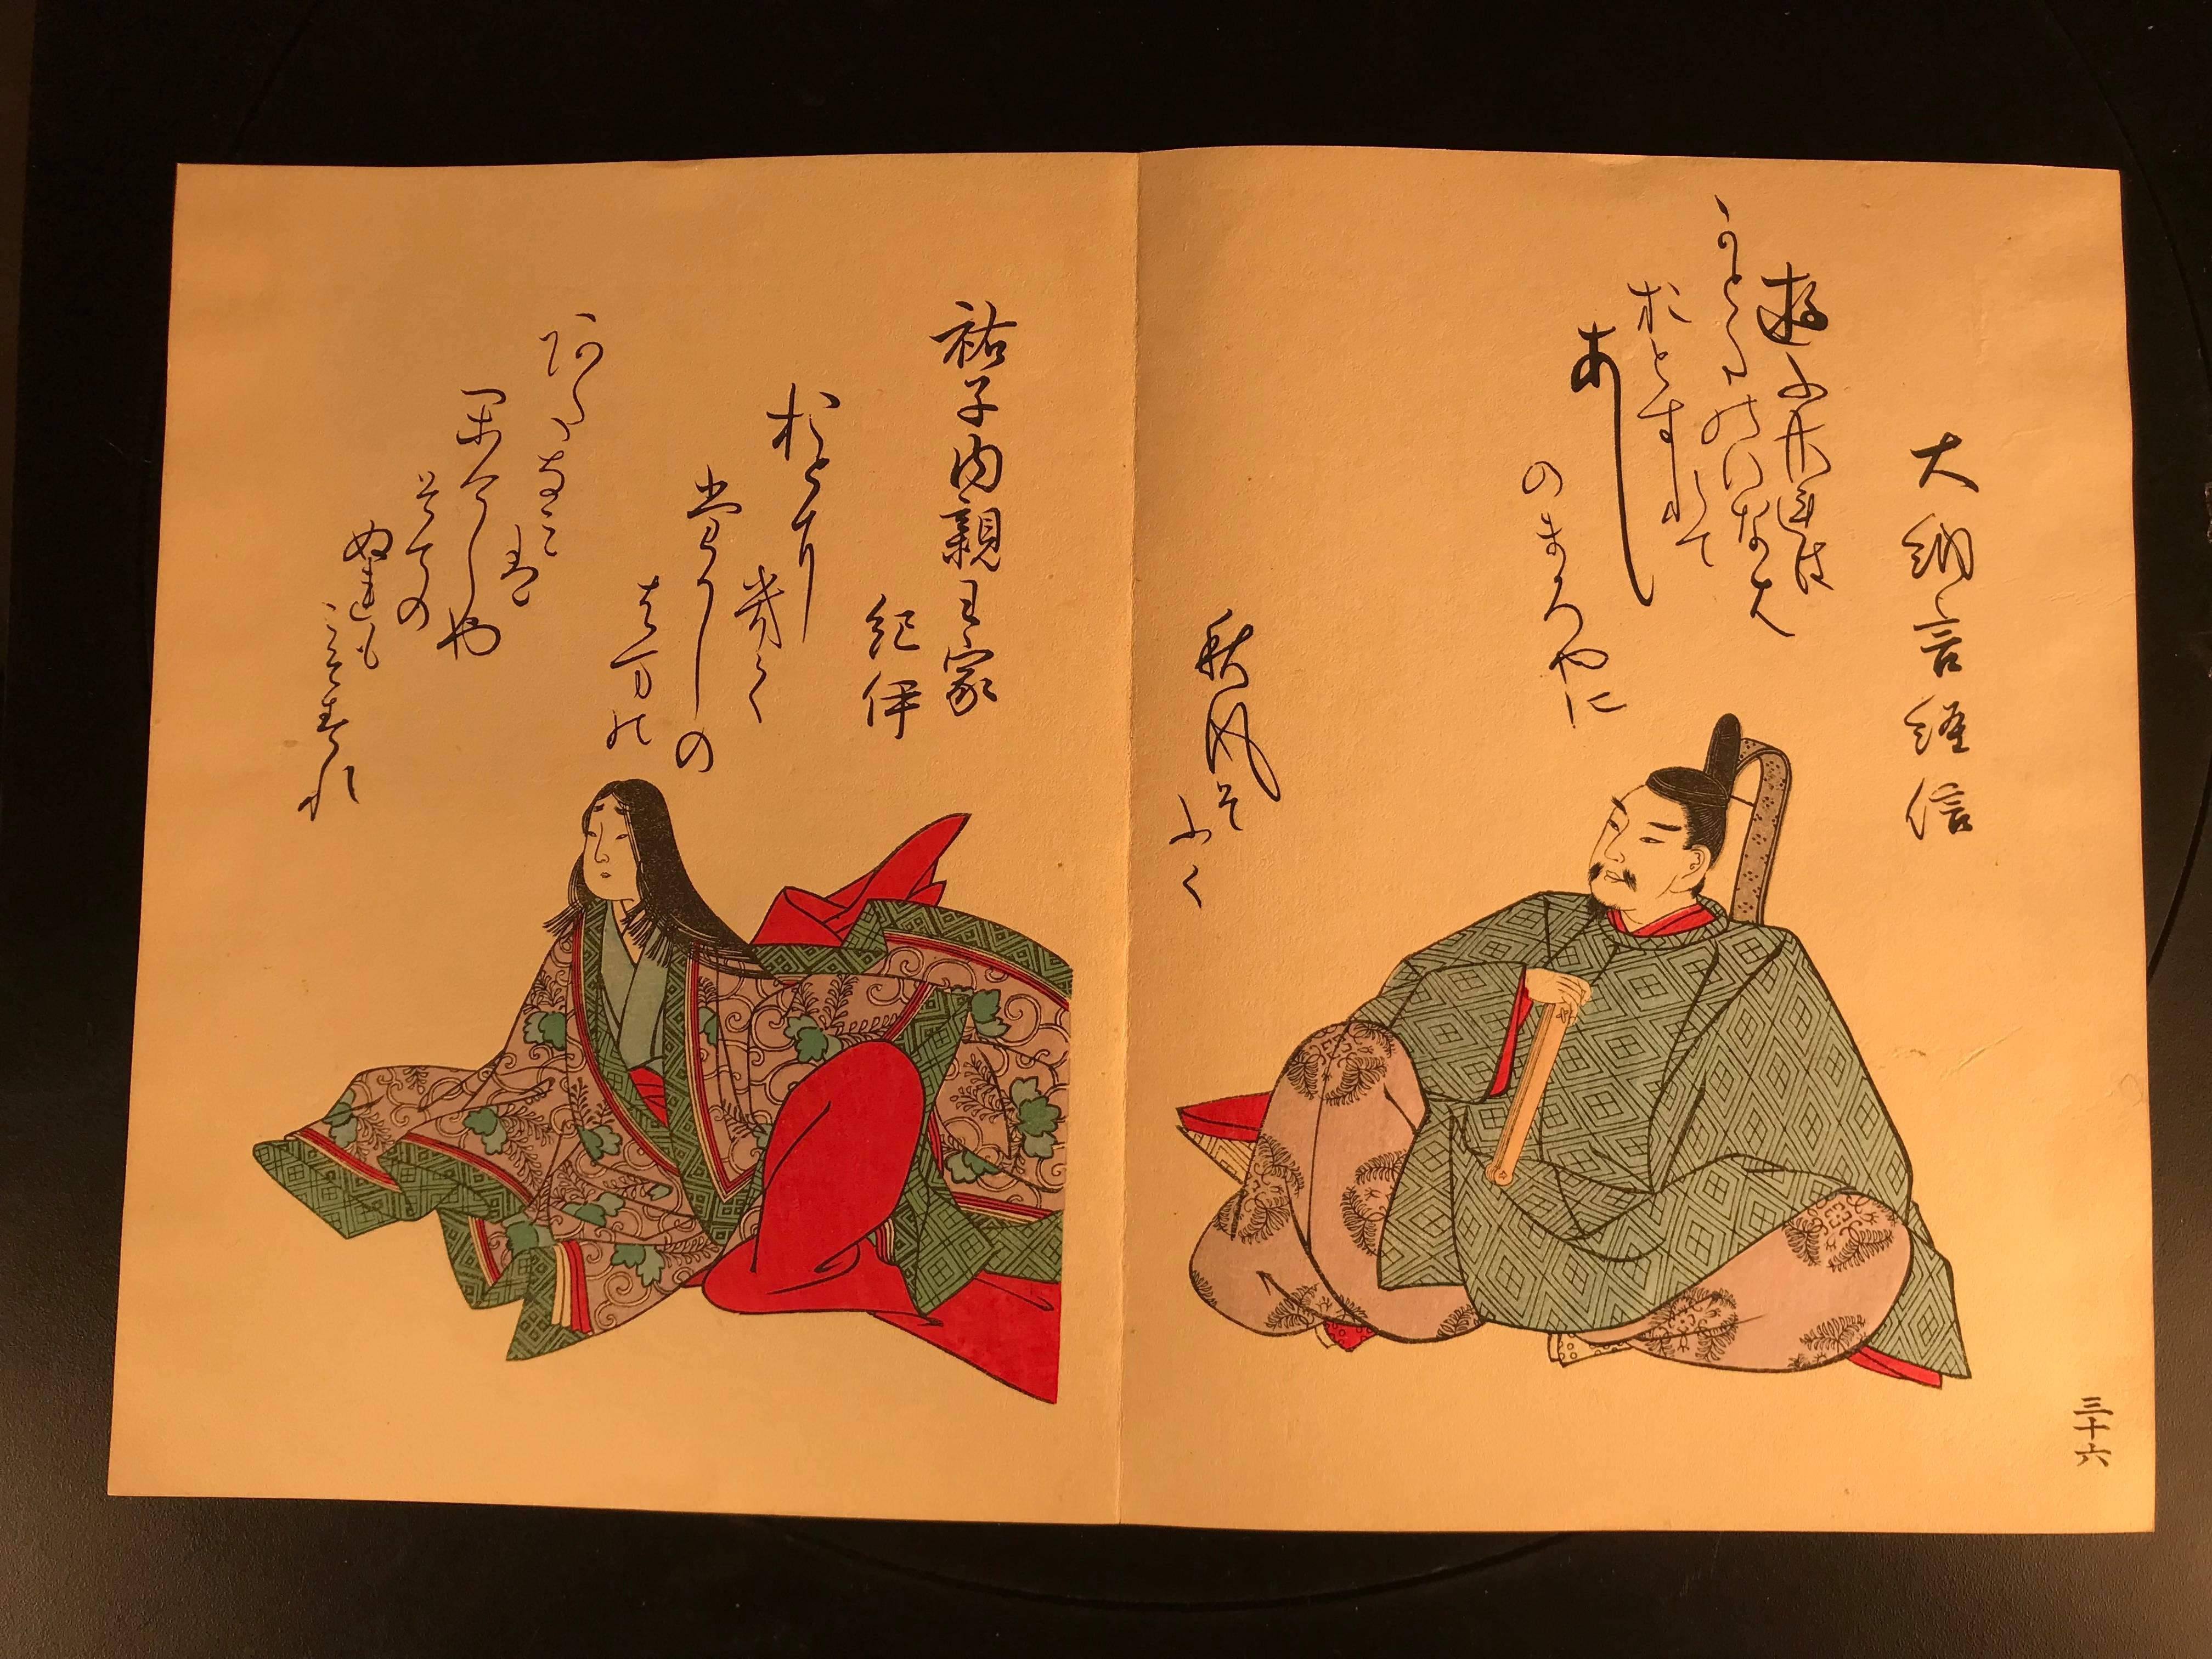 大納言経信
夕されは
かとたのいなは
おとつれて
あし
のまろやに
秋風そ
ふく
三十六
祐子内親王家
紀伊
おとに
きく
たかしの
はまの
あたなみ
は
かけしや
そての
ぬれも
こそすれ